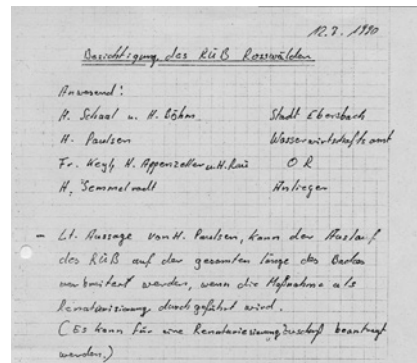 12.7.1990
Besichtigung des RÜB Rosswälden
Anwesend:
H. Schaal u. H. Böhm Stadt Ebersbach
H. Paulsen Wasserwirtschaftsamt
Fr. Weyh, H. Appenzeller u. H. Rau O R
H. Semmelrodt Anlieger
- Lt. Aussage von H. Paulsen, kann der Auslauf
des RÜB auf der gesamten Länge des Baches
verbreitert werden, wenn die Maßnahme als
Renaturisierung durchgeführt wird.
(Es kann für eine Renaturisierung Zuschuß beantragt
werden.)